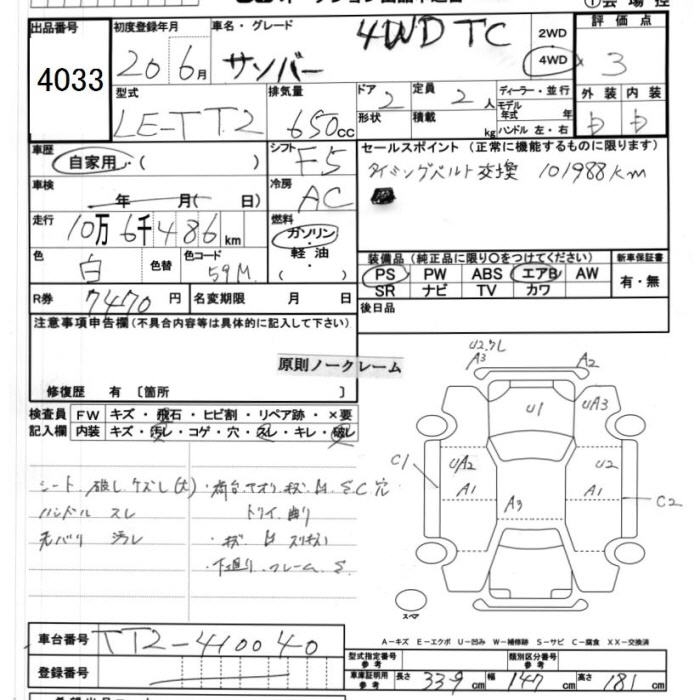 出品番号 4033
初度登録年月 20 6月
車名・グレード サンバー 4WD TC
2WD
4WD
評価点 3
型式 LE-TT2
排気量 650cc
ドア 2
定員 2人
形状
積載 kg
ディーラー・並行
モデル年式 年
ハンドル 左・右
外装 内装
車歴 自家用・( )
シフト F5
セールスポイント (正常に機能するものに限ります)
タイミングベルト交換 101988km
車検 年 月( 日
冷房 AC
走行 10万6千486km
燃料 ガソリン・軽油・( )
色 白
色替
色コード 59M
装備品 (純正品に限り○をつけてください)
新車保証書 有・無
PS PW ABS エアB AW
SR ナビ TV カワ
R券 7470円
名変期限 月 日
後日品
注意事項申告欄(不具合内容等は具体的に記入して下さい)
原則ノークレーム
修復歴 有〔箇所 〕
検査員記入欄
FW キズ・飛石・ヒビ割・リペア跡・×要
内装 キズ・汚レ・コゲ・穴・スレ・キレ・破レ
シート 破レ ケズレ(大)
ハンドル スレ
・荷台アオリ キズ
S.C穴
汚レ
・下廻り フレーム S.
A3
A2
U1
UA3
C1
UA2
A1
A3
U2
A1
C2
スペア
A-キズ E-エクボ U-凹み W-補修跡 S-サビ C-腐食 XX-交換済
車台番号 TT2-410040
登録番号
型式指定番号参考
類別区分番号参考
車庫証明用参考 長さ 339cm 幅 147cm 高さ 181cm